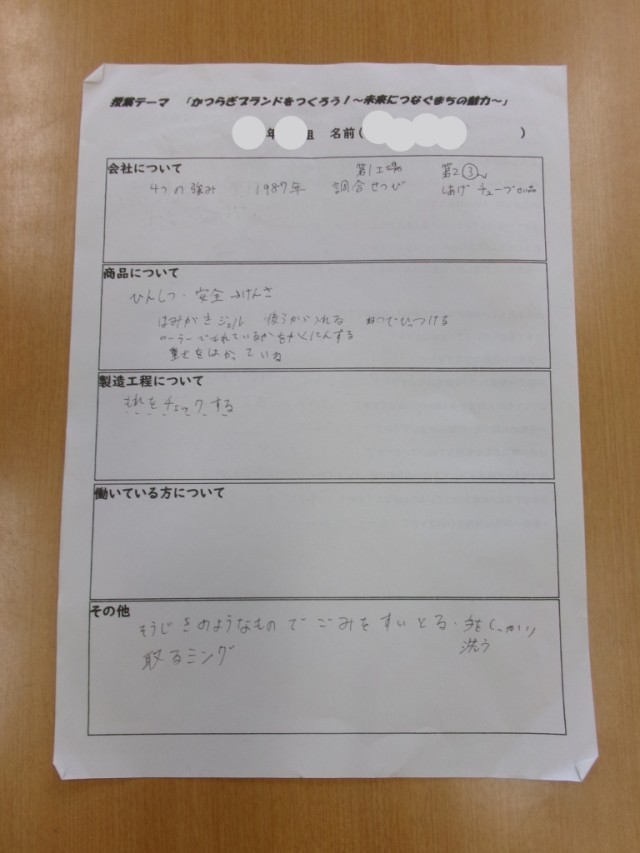 授業テーマ 「かつらぎブランドをつくろう!~未来につなぐまちの魅力~」
年 組 名前( )
会社について
第1工場 第2③
4つの強み 1987年 調合せつび しあげ チューブ
商品について
ひんしつ・安全
はみがきジェル 後ろから入れる ねつでひっつける
ローラーで
重さをはかっている
製造工程について
もれをチェックする
働いている方について
その他
そうじきのようなもので ごみを すいとる・手をしっかり
洗う
取るミング